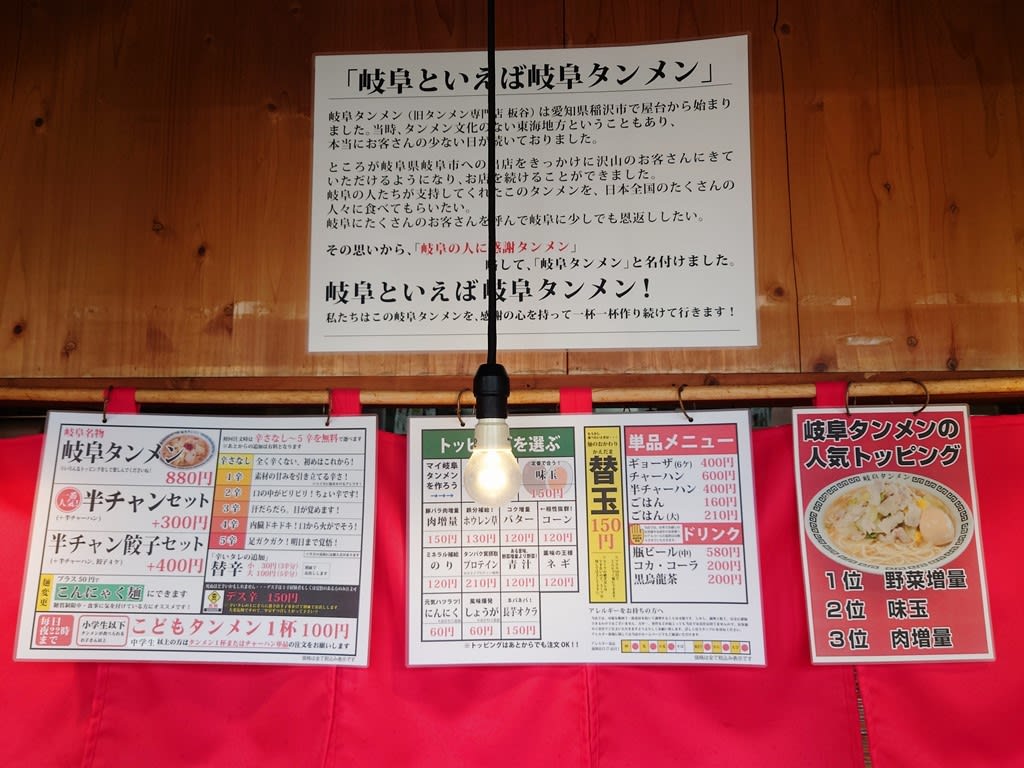 「岐阜といえば岐阜タンメン」
岐阜タンメン（旧タンメン専門店 板谷）は愛知県稲沢市で屋台から始まり
ました。当時、タンメン文化のない東海地方ということもあり、
本当にお客さんの少ない日が続いておりました。
ところが岐阜県岐阜市への出店をきっかけに沢山のお客さんにきて
いただけるようになり、お店を続けることができました。
岐阜の人たちが支持してくれたこのタンメンを、日本全国のたくさんの
人々に食べてもらいたい。
岐阜にたくさんのお客さんを呼んで岐阜に少しでも恩返ししたい。
その思いから、「岐阜の人に感謝タンメン」
略して、「岐阜タンメン」と名付けました。
岐阜といえば岐阜タンメン！
私たちはこの岐阜タンメンを、感謝の心を持って一杯一杯作り続けて行きます！
岐阜名物
岐阜タンメン
880円
半チャンセット
(+半チャーハン)
+300円
半チャン餃子セット
(+半チャーハン、餃子4ケ)
+400円
麺変更
プラス50円で
こんにゃく麺にできます
初回注文時は 辛さなし～5辛を無料で選べます
辛さなし 全く辛くない、初めはこれから！
1辛 素材の甘みを引き立てる辛さ！
2辛 口の中がピリピリ！ちょい辛です！
3辛 汗だらだら、目が覚める！
4辛 内臓ドキドキ！口から火がでそう！
5辛 足ガクガク！明日まで覚悟！
「辛いタレの追加」
替辛
小 30円(3辛分)
大 100円(5辛分)
デス辛 150円
毎日夜22時まで
小学生以下
こどもタンメン1杯100円
中学生以上の方はタンメン1杯またはチャーハン単品の注文をお願いします
価格は全て税込み表示です
トッピングを選ぶ
マイ岐阜
タンメン
を作ろう
定番で合う！
味玉
150円
豚バラ肉増量
肉増量
150円
鉄分補給！
ホウレン草
130円
コク増量
バター
120円
相性抜群！
コーン
120円
ミネラル補給
のり
120円
タンパク質摂取
プロテイン
210円
青汁
120円
薬味の王様
ネギ
120円
元気ハツラツ！
にんにく
60円
風味爆発
しょうが
60円
ネバネバ！
長芋オクラ
150円
※トッピングはあとからでも注文OK！！
麺のおかわり
かえだま
替玉
150円
単品メニュー
ギョーザ(6ケ) 400円
チャーハン 600円
半チャーハン 400円
ごはん 160円
ごはん(大) 210円
ドリンク
瓶ビール(中) 580円
コカ・コーラ 200円
黒烏龍茶 200円
アレルギーをお持ちの方へ
価格は全て税込み表示です
岐阜タンメンの
人気トッピング
岐阜タンメン
1位 野菜増量
2位 味玉
3位 肉増量